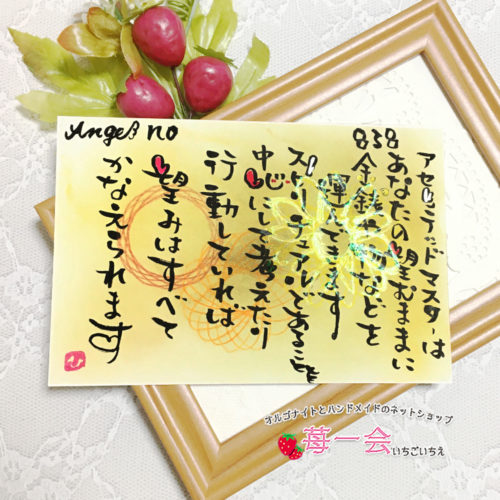 Angel no
838
アセンデッドマスターは
あなたの望むままに
金銭や物などを
運んできます
スピリチュアルであることを
中心にして考えたり
行動していれば
望みはすべて
かなえられます
ひ
オルゴナイトとハンドメイドのネットショップ
苺一会
いちごいちえ